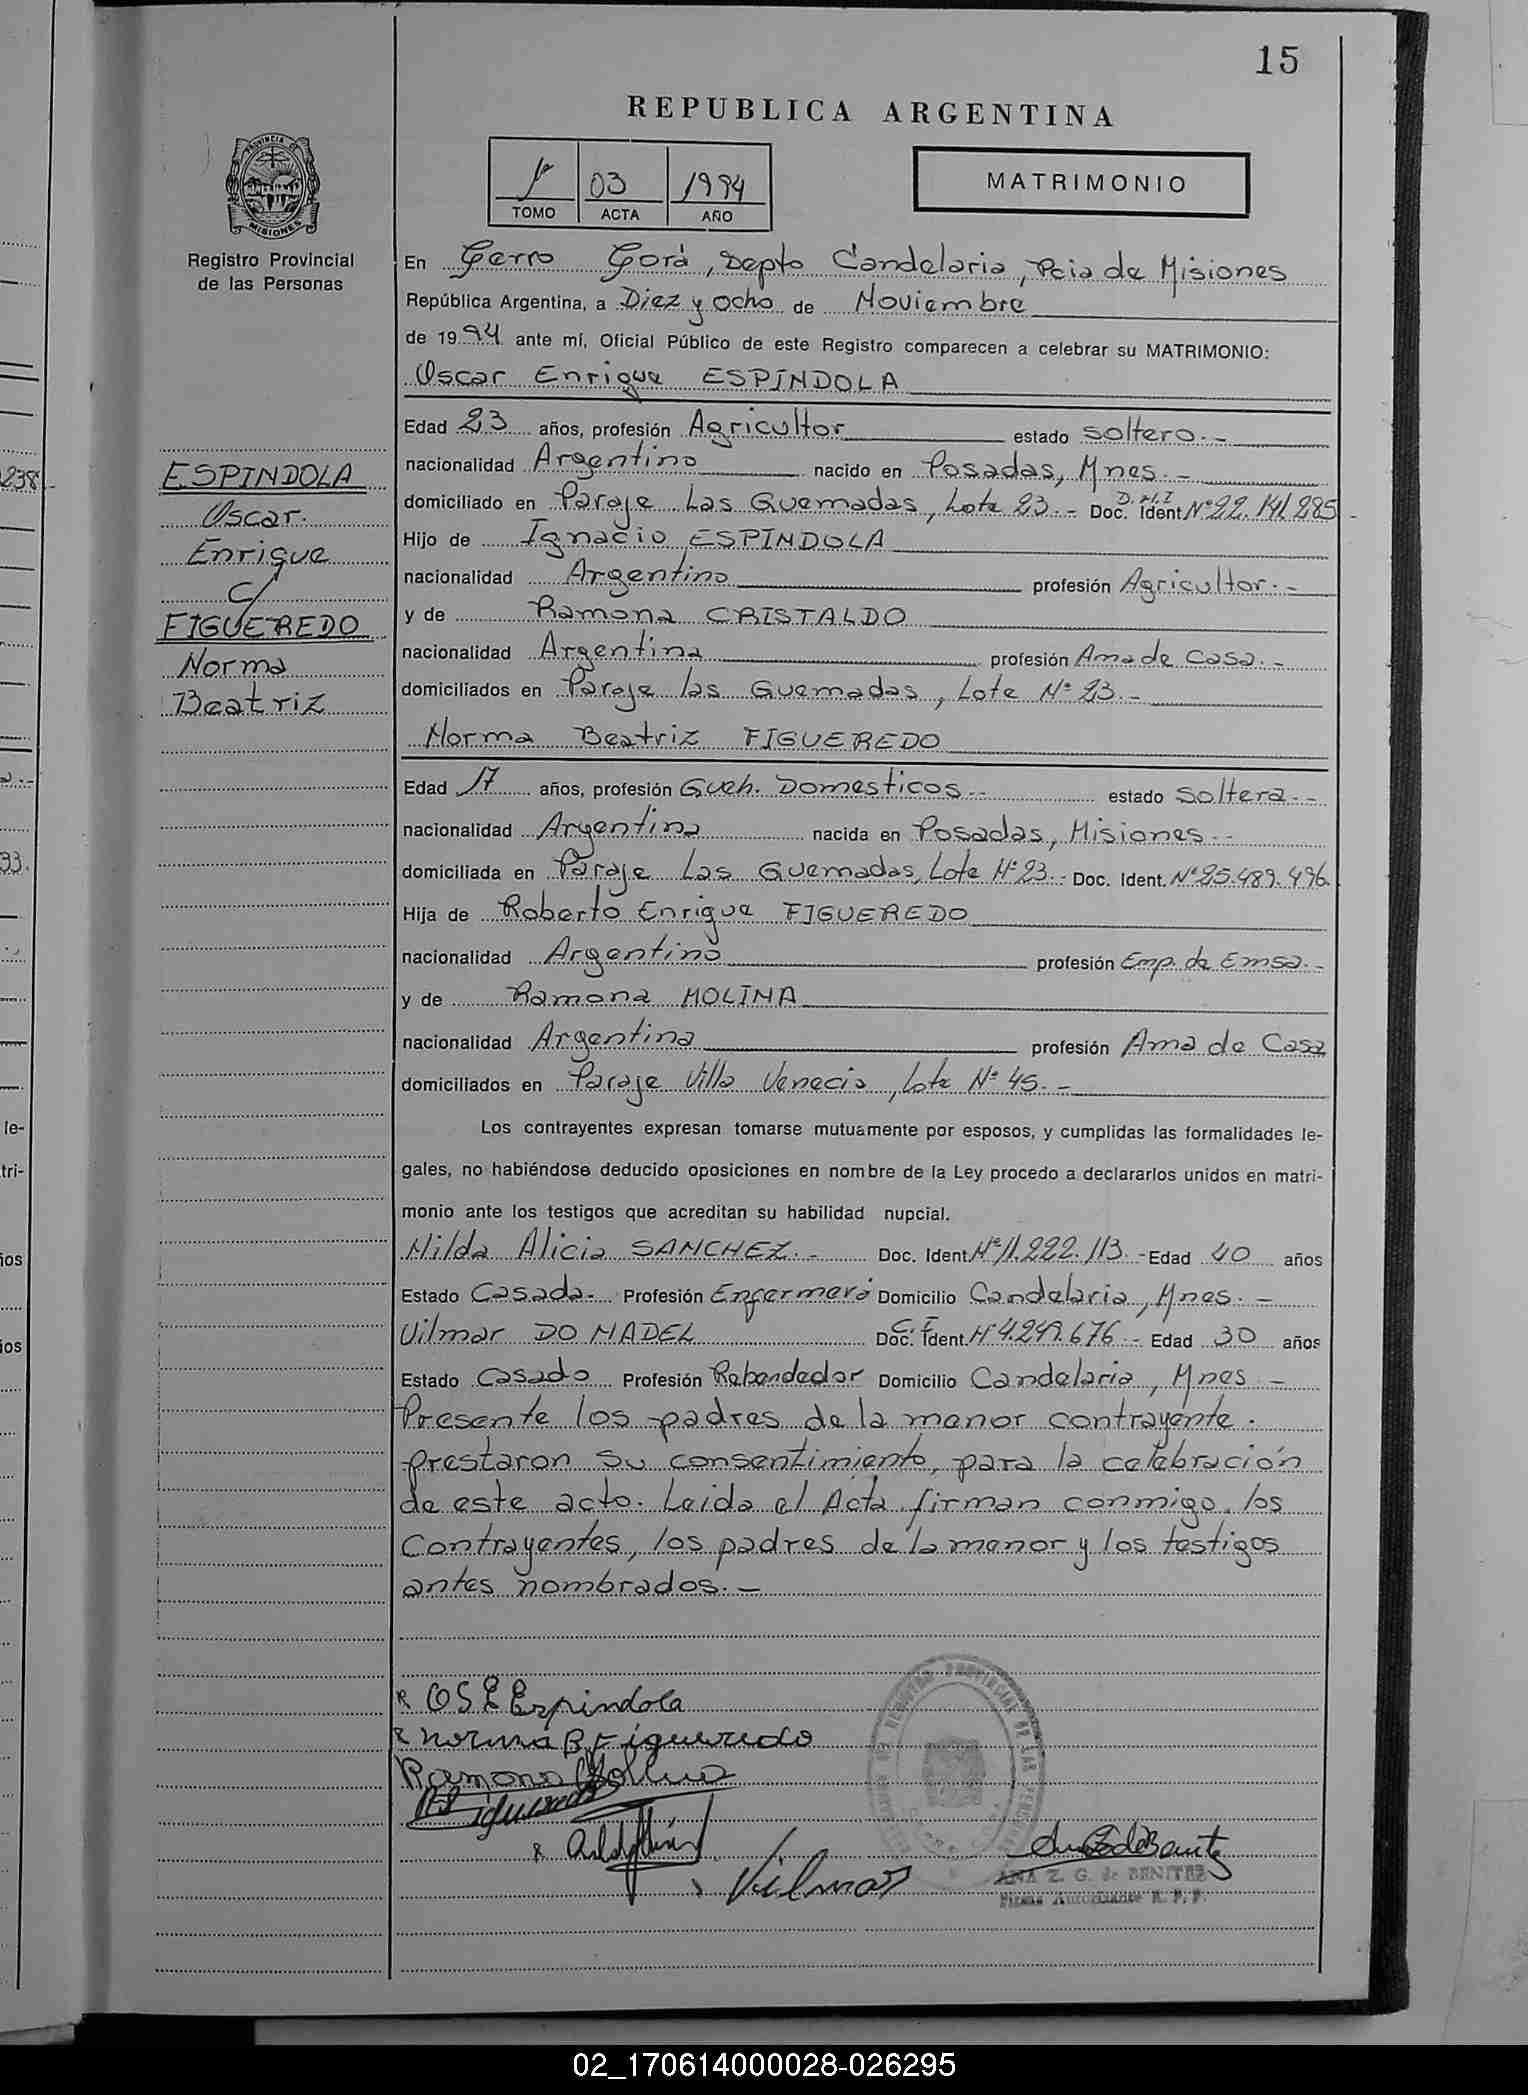 15
REPUBLICA ARGENTINA
1º 03 1994
TOMO ACTA AÑO
MATRIMONIO
PROVINCIA DE
MISIONES
Registro Provincial
de las Personas
En Cerro Corá, Depto Candelaria, Pcia de Misiones
República Argentina, a Diez y Ocho de Noviembre
de 1994 ante mí, Oficial Público de este Registro comparecen a celebrar su MATRIMONIO:
Oscar Enrique ESPÍNDOLA
Edad 23 años, profesión Agricultor estado soltero.-
nacionalidad Argentino nacido en Posadas, Mnes.-
domiciliado en Paraje Las Quemadas, Lote 23.- Doc. Ident D.N.I Nº 22.141.285
Hijo de Ignacio ESPÍNDOLA
nacionalidad Argentino profesión Agricultor.-
y de Ramona CRISTALDO
nacionalidad Argentina profesión Ama de casa.-
domiciliados en Paraje las Quemadas, Lote Nº 23.-
Norma Beatriz FIGUEREDO
Edad 17 años, profesión Queh. Domesticos.- estado soltera.-
nacionalidad Argentina nacida en Posadas, Misiones.-
domiciliada en Paraje Las Quemadas, Lote Nº 23.- Doc. Ident. Nº 25.489.496
Hija de Roberto Enrique FIGUEREDO
nacionalidad Argentino profesión Emp. de Emsa.-
y de Ramona MOLINA
nacionalidad Argentina profesión Ama de Casa
domiciliados en Paraje Villa Venecia, Lote Nº 45.-
Los contrayentes expresan tomarse mutuamente por esposos, y cumplidas las formalidades le-
gales, no habiéndose deducido oposiciones en nombre de la Ley procedo a declararlos unidos en matri-
monio ante los testigos que acreditan su habilidad nupcial.
Hilda Alicia SANCHEZ.- Doc. Ident. Nº 11.222.113.- Edad 40 años
Estado Casada.- Profesión Enfermera Domicilio Candelaria, Mnes.-
Vilmar DO NADEL Doc. Ident. C.I Nº 4.249.676.- Edad 30 años
Estado Casado Profesión Rebendedor Domicilio Candelaria, Mnes -
Presente los padres de la menor contrayente.
prestaron su consentimiento, para la celebración
de este acto. Leida el Acta firman conmigo, los
Contrayentes, los padres de la menor y los testigos
antes nombrados.-
ESPINDOLA
Oscar
Enrique
C/
FIGUEREDO
Norma
Beatriz
OS E Espindola
Norma B Figueredo
Ramona Molina
Figueredo
Vilmar
ANA Z. G. de BENITEZ
Firma Autorizante R. P. P.
238
33.
le-
tri-
ios
ios
02_170614000028-026295